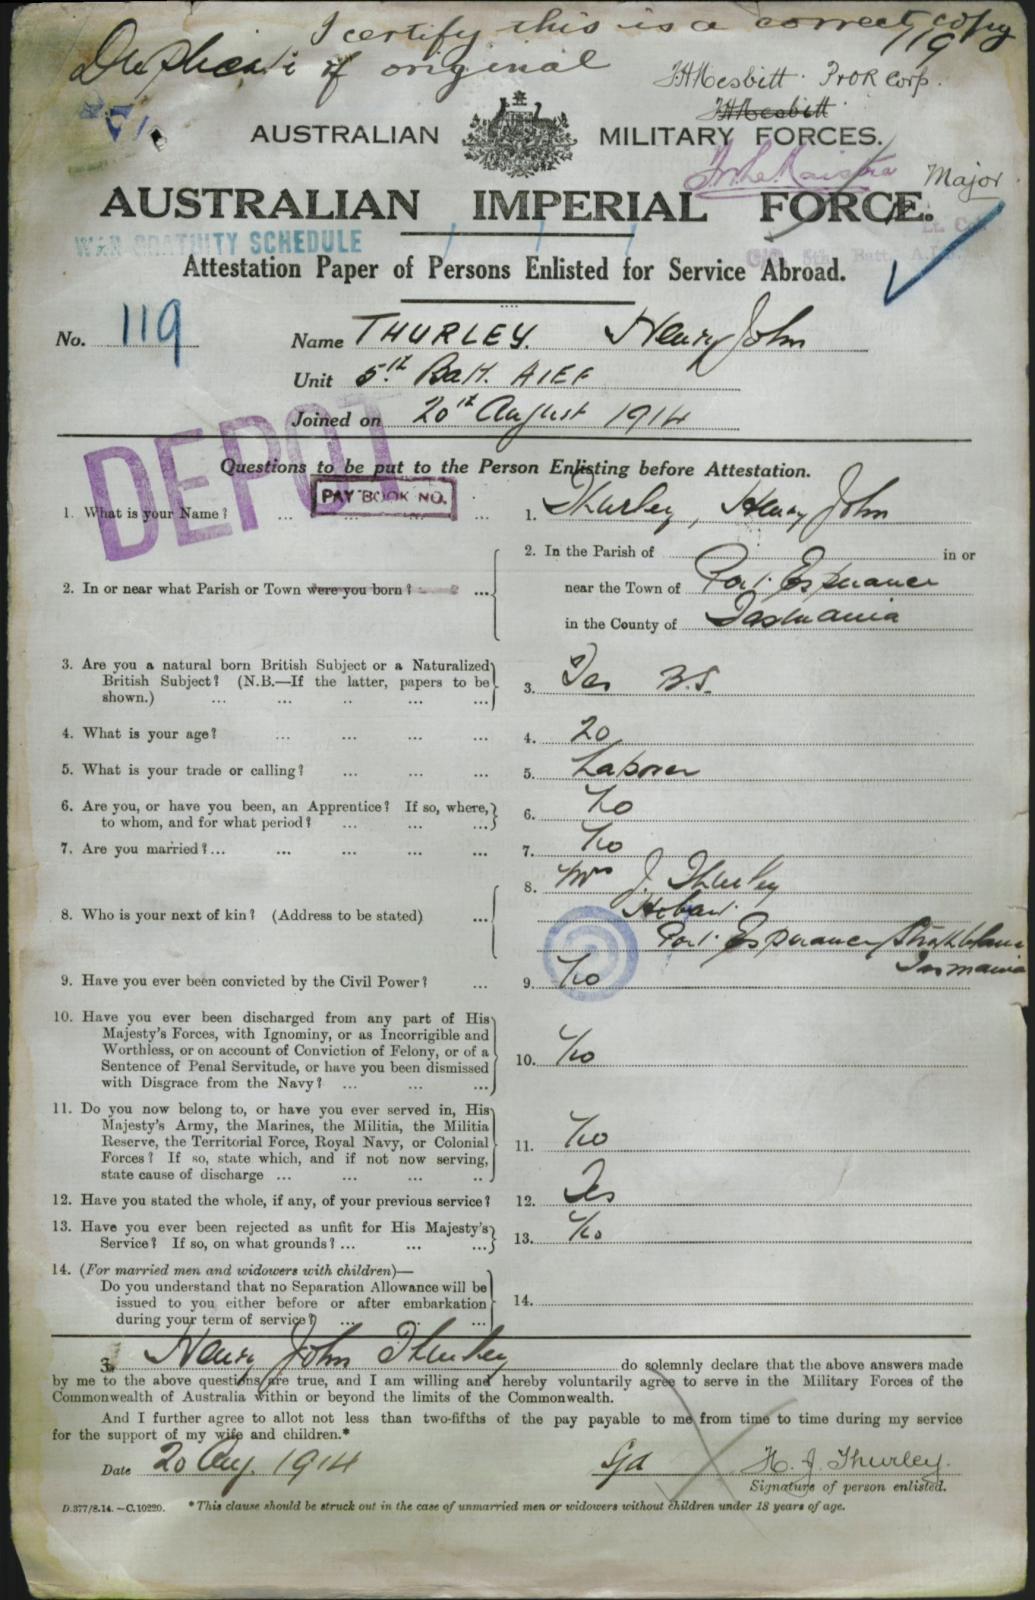 I certify this is a correct copy
Duplicate of original 119
JHNesbitt. Pror Corp.
JHNesbitt
AUSTRALIAN MILITARY FORCES.
Major
AUSTRALIAN IMPERIAL FORCE.
Lt Col
WAR GRATUITY SCHEDULE
O/C 5th Batt. A.I.F.
Attestation Paper of Persons Enlisted for Service Abroad.
No. 119 Name THURLEY. Henry John
Unit 5th Batt. AIEF
Joined on 20th August 1914
DEPOT
Questions to be put to the Person Enlisting before Attestation.
PAY BOOK NO.
1. What is your Name? ... ... ... ... 1. Thurley, Henry John
2. In or near what Parish or Town were you born? ... 2. In the Parish of in or
near the Town of Port Esperance
in the County of Tasmania
3. Are you a natural born British Subject or a Naturalized
British Subject? (N.B.—If the latter, papers to be
shown.) ... ... .. ... ... 3. Yes B.S.
4. What is your age? ... ... ... ... 4. 20
5. What is your trade or calling? ... ... ... 5. Laborer
6. Are you, or have you been, an Apprentice? If so, where,
to whom, and for what period? ... ... ... 6. No
7. Are you married?... ... ... ... ... 7. No
8. Who is your next of kin? (Address to be stated) ... 8. Mrs J. Thurley
Hobart.
Port. Esperance Strathblane
Tasmania
9. Have you ever been convicted by the Civil Power? ... 9. No
10. Have you ever been discharged from any part of His
Majesty's Forces, with Ignominy, or as Incorrigible and
Worthless, or on account of Conviction of Felony, or of a
Sentence of Penal Servitude, or have you been dismissed
with Disgrace from the Navy? ... ... ... 10. No
11. Do you now belong to, or have you ever served in, His
Majesty's Army, the Marines, the Militia, the Militia
Reserve, the Territorial Force, Royal Navy, or Colonial
Forces? If so, state which, and if not now serving,
state cause of discharge ... ... ... .. 11. No
12. Have you stated the whole, if any, of your previous service? 12. Yes
13. Have you ever been rejected as unfit for His Majesty's
Service? If so, on what grounds? ... ... ... 13. No
14. (For married men and widowers with children)—
Do you understand that no Separation Allowance will be
issued to you either before or after embarkation
during your term of service? ... ... 14.
3. Henry John Thurley do solemnly declare that the above answers made
by me to the above questions are true, and I am willing and hereby voluntarily agree to serve in the Military Forces of the
Commonwealth of Australia within or beyond the limits of the Commonwealth.
And I further agree to allot not less than two-fifths of the pay payable to me from time to time during my service
for the support of my wife and children.*
Date 20 Aug. 1914 Sgd H. J. Thurley.
Signature of person enlisted.
D.377/8.14.—C.10220. *This clause should be struck out in the case of unmarried men or widowers without children under 18 years of age.